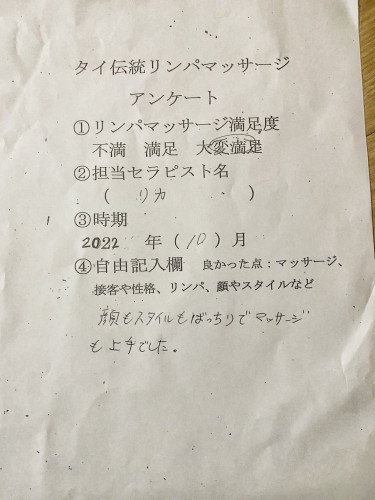 タイ伝統リンパマッサージ
アンケート
①リンパマッサージ満足度
不満　満足　大変満足
②担当セラピスト名
（　リカ　）
③時期
2022 年（10）月
④自由記入欄　良かった点：マッサージ、
接客や性格、リンパ、顔やスタイルなど
顔もスタイルもばっちりでマッサージ
も上手でした。